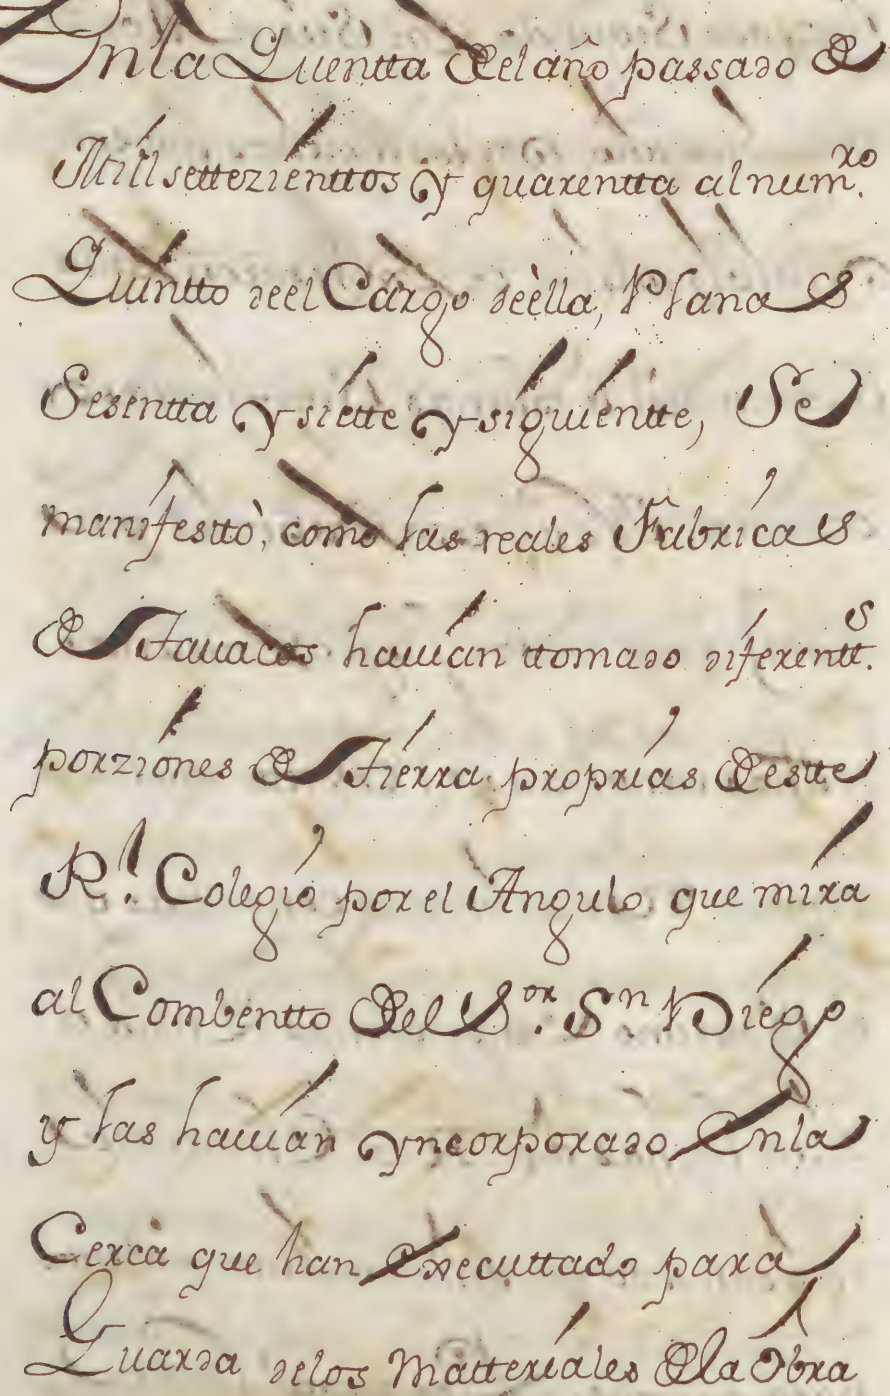 Enla Quentta del año passado de
Mill settezienttos y quarentta al num.ro
Quintto deel Cargo deèlla, Plana
Sesentta y siette y siguientte, Se
manifesttò, como las reales Fabricas
de Tauacos hauian ttomado diferentt.s
porziones de Tierra proprias de estte
R.l Colegio por el Angulo que mira
al Combentto del S.or S.n Diego
y las hauian yncorporado En la
Cerca que han Executtado para
Guarda delos Matteriales de la Obra